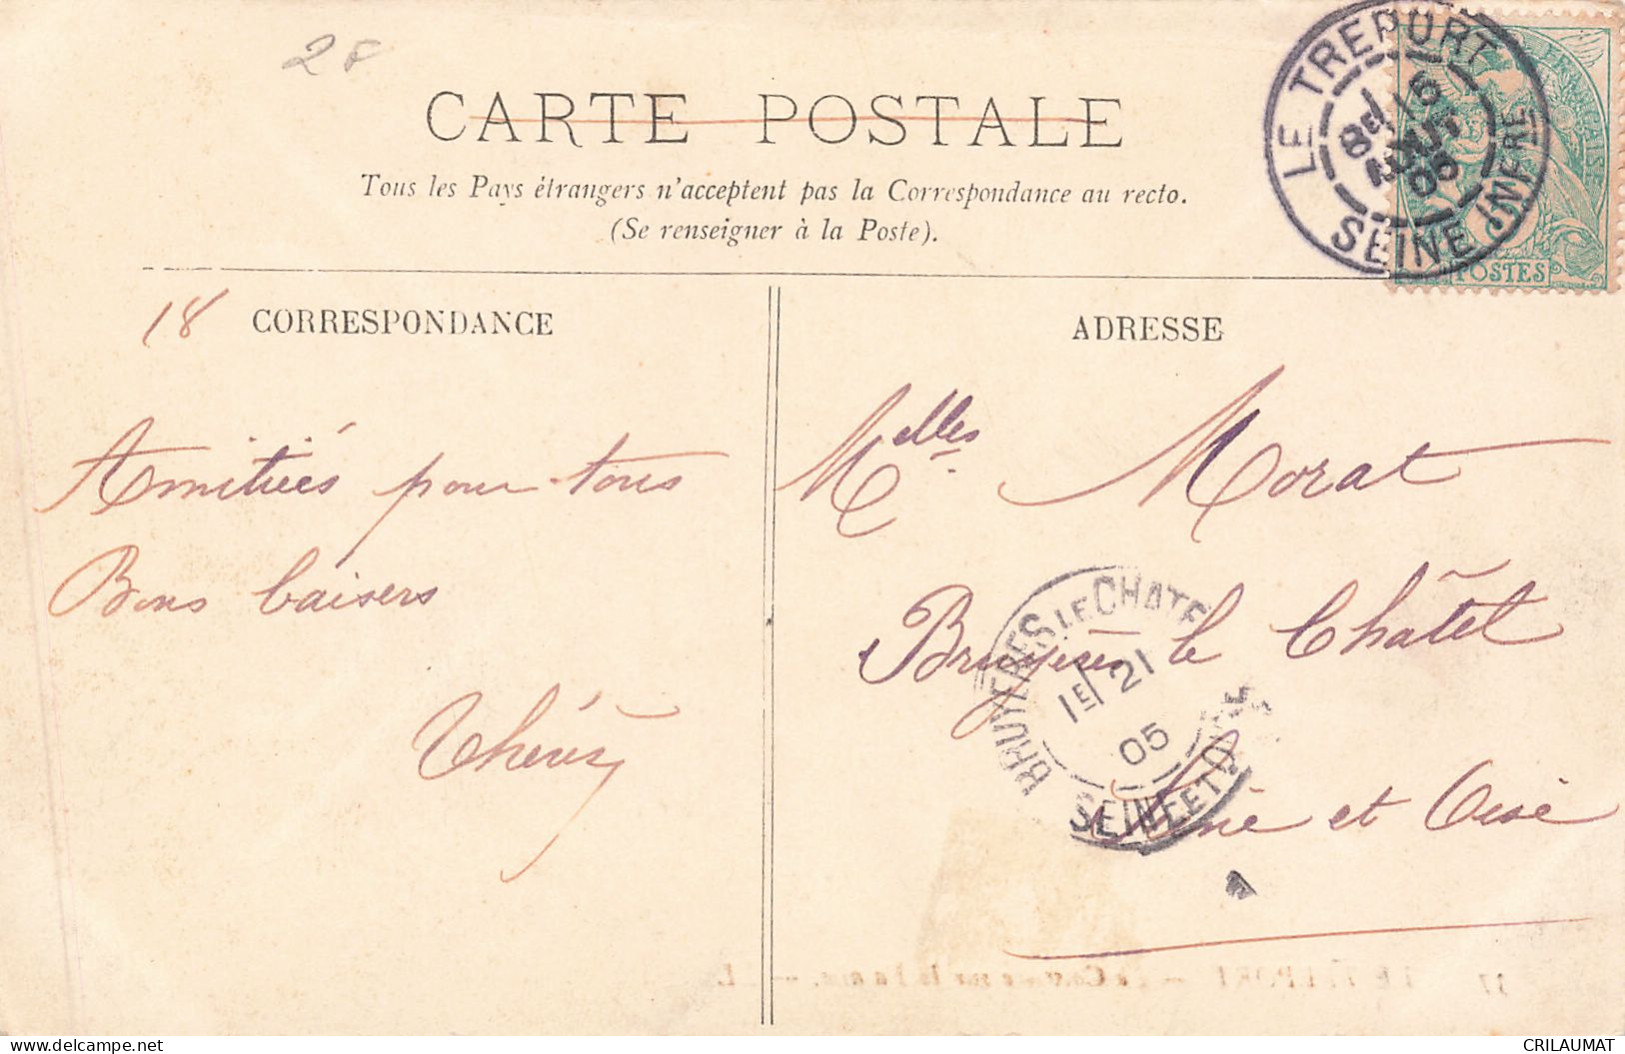 2F
CARTE POSTALE
Tous les Pays étrangers n'acceptent pas la Correspondance au recto.
(Se renseigner à la Poste).
LE TREPORT
8E/ 16
05
SEINE INFRE
POSTES
18
CORRESPONDANCE
ADRESSE
Amitiés pour tous
Bons baisers
Melles Morat
Bruyères le Châtel
Seine et Oise
BRUYERES LE CHATEL
1E/ 21
05
SEINE ET OISE
CRILAUMAT